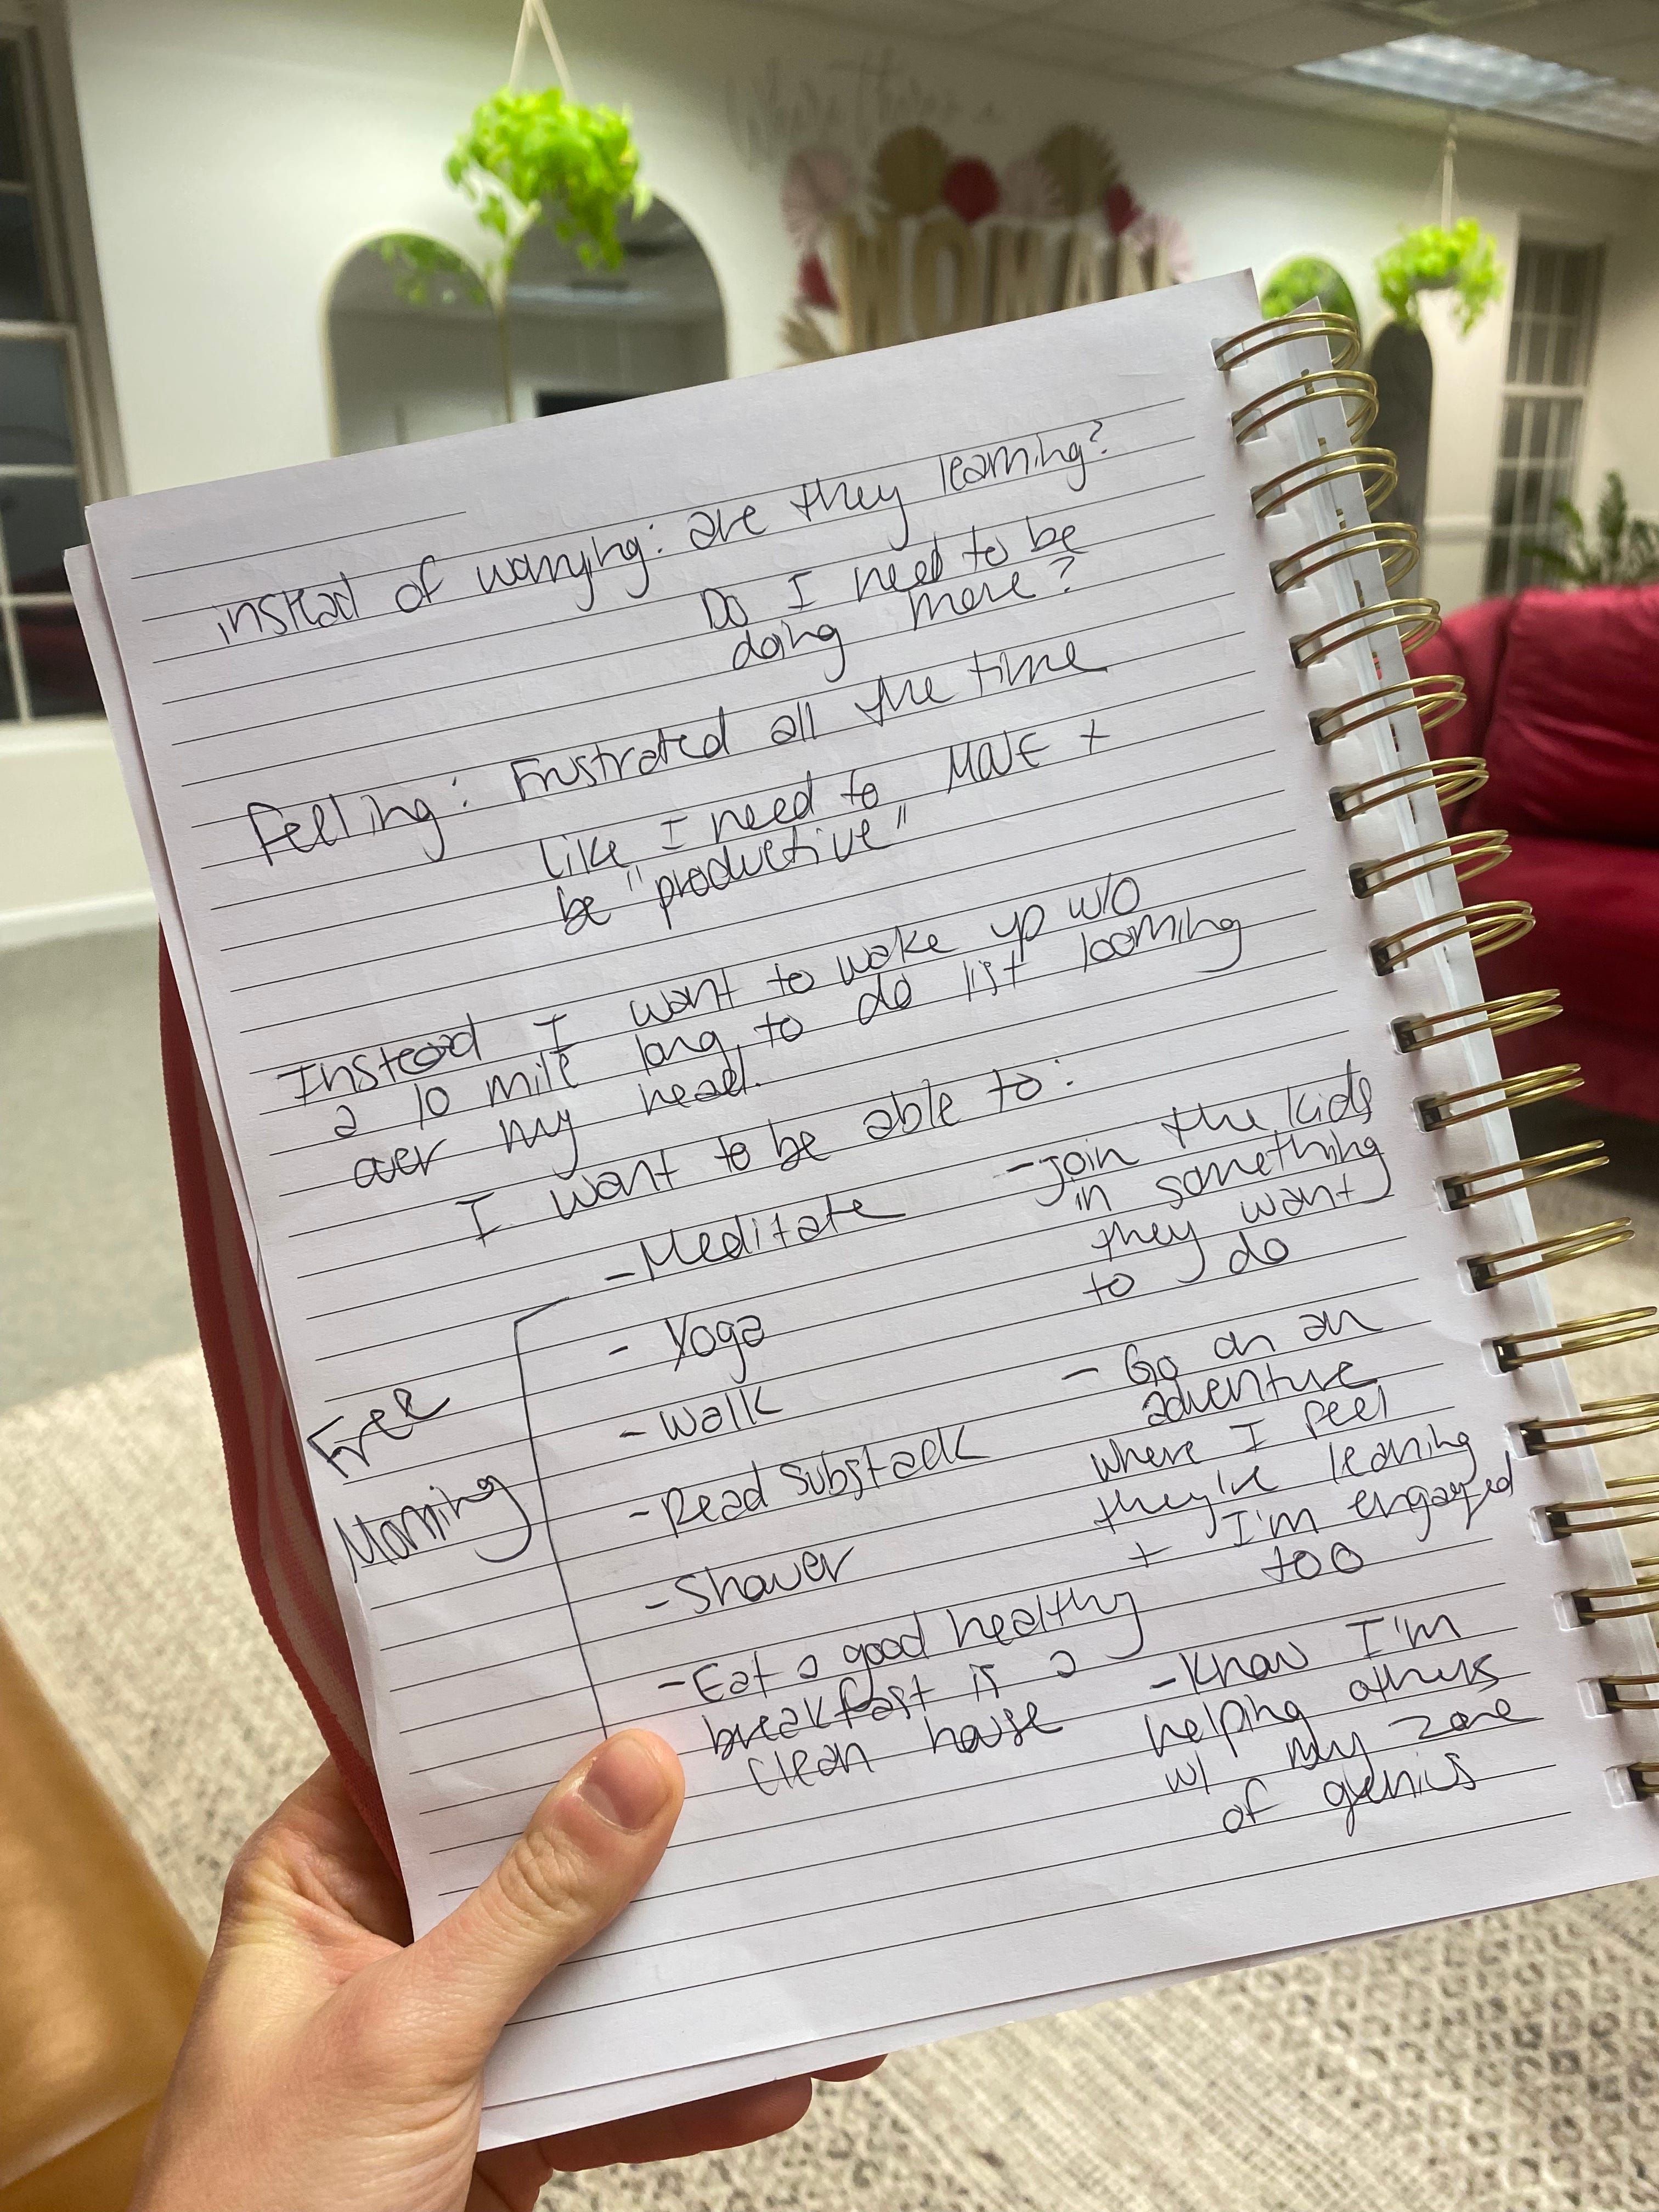 WOMAN
instead of worrying: are they learning?
Do I need to be
doing more?
Feeling: Frustrated all the time
like I need to MOVE +
be "productive"
Instead I want to wake up w/o
a 10 mile long to do list looming
over my head.
I want to be able to:
Free
Morning
- Meditate
- Yoga
- Walk
- Read Substack
- Shower
- Eat a good healthy
breakfast in a
clean house
- Join the kids
in something
they want
to do
- Go on an
adventure
where I feel
they're learning
+ I'm engaged
too
- Know I'm
helping others
w/ my zone
of genius